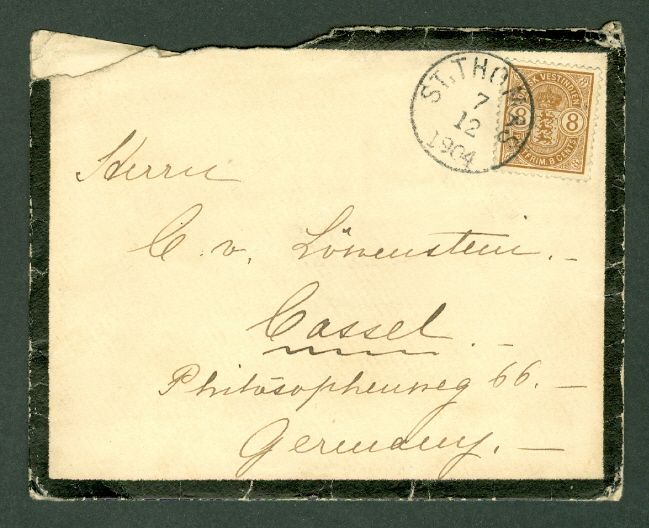 ST. THOMAS
7
12
1904
K VESTINDIEN
8 8
FRIM. 8 CENTS
Herrn
C. v. Löwenstein. -
Cassel. -
Philosophenweg 66. -
Germany. -